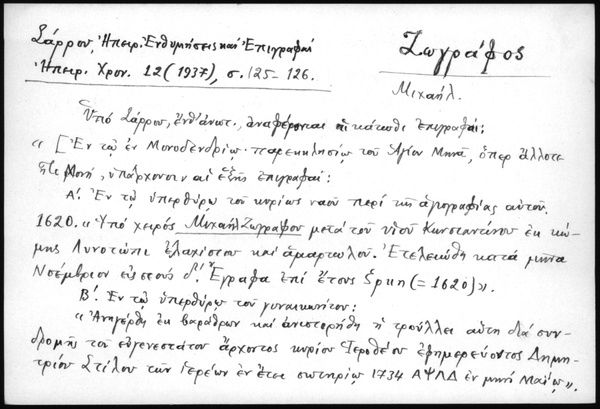 Σάρρου, Ἠπειρ. Ἐνθυμήσεις καὶ Ἐπιγραφαί
Ἠπειρ. Χρον. 12 (1937), σ. 125-126.
Ζωγράφος
Μιχαήλ.
Ὑπὸ Σάρρου, ἔνθ' ἀνωτ., ἀναφέρονται αἱ κάτωθι ἐπιγραφαί:
« [Ἐν τῷ ἐν Μονοδενδρίῳ παρεκκλησίῳ τοῦ Ἁγίου Μηνᾶ, ὅπερ ἄλλοτε
Μονή, ὑπάρχουσιν αἱ ἑξῆς ἐπιγραφαί:
Α'. Ἐν τῷ ὑπερθύρῳ τοῦ κυρίως ναοῦ περὶ τῆς ἁγιογραφίας αὐτοῦ.
1620. «Ὑπὸ χειρὸς Μιχαὴλ Ζωγράφου μετὰ τοῦ υἱοῦ Κωνσταντίνου ἐκ κώ-
μης Λυνοτώπι ἐλαχίστου καὶ ἁμαρτωλοῦ. Ἐτελειώθη κατὰ μῆνα
Νοέμβριον εἰς τοὺς δ'. Ἔγραφα ἐπὶ ἔτους ζρκη (= 1620)».
Β'. Ἐν τῷ ὑπερθύρῳ τοῦ γυναικωνίτου:
« Ἀνηγέρθη ἐκ βαράθρων καὶ ἀνιστορήθη ἡ τρούλλει αὕτη διὰ συν-
δρομῆς τοῦ εὐγενεστάτου ἄρχοντος κυρίου Ἱεροθέου ἐφημερεύοντος Δημη-
τρίου Στίλου τῶν ἱερέων ἐν ἔτει σωτηρίῳ 1734 ΑΨΛΔ ἐν μηνὶ Μαΐῳ».